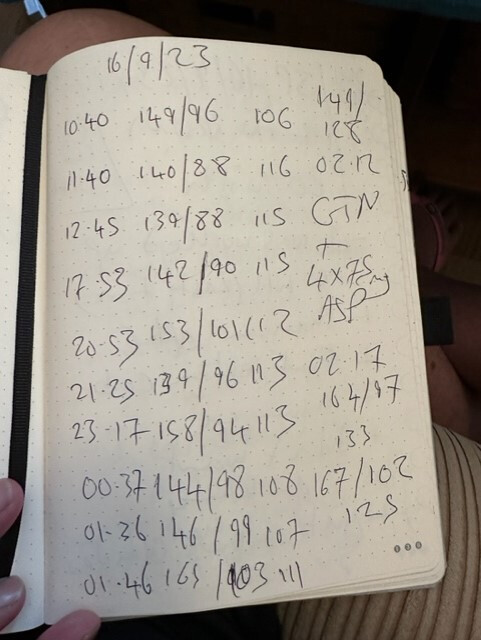 16/9/23
10.40 149/96 106
11.40 140/88 116
12.45 139/88 115
17.53 142/90 115
20.53 153/101 112
21.25 139/96 113
23.17 158/94 113
00.37 144/98 108
01.36 146/99 107
01.46 165/103 111
128
02.12
GTN
+
4x75mg
ASP
02.17
164/97
133
167/102
125